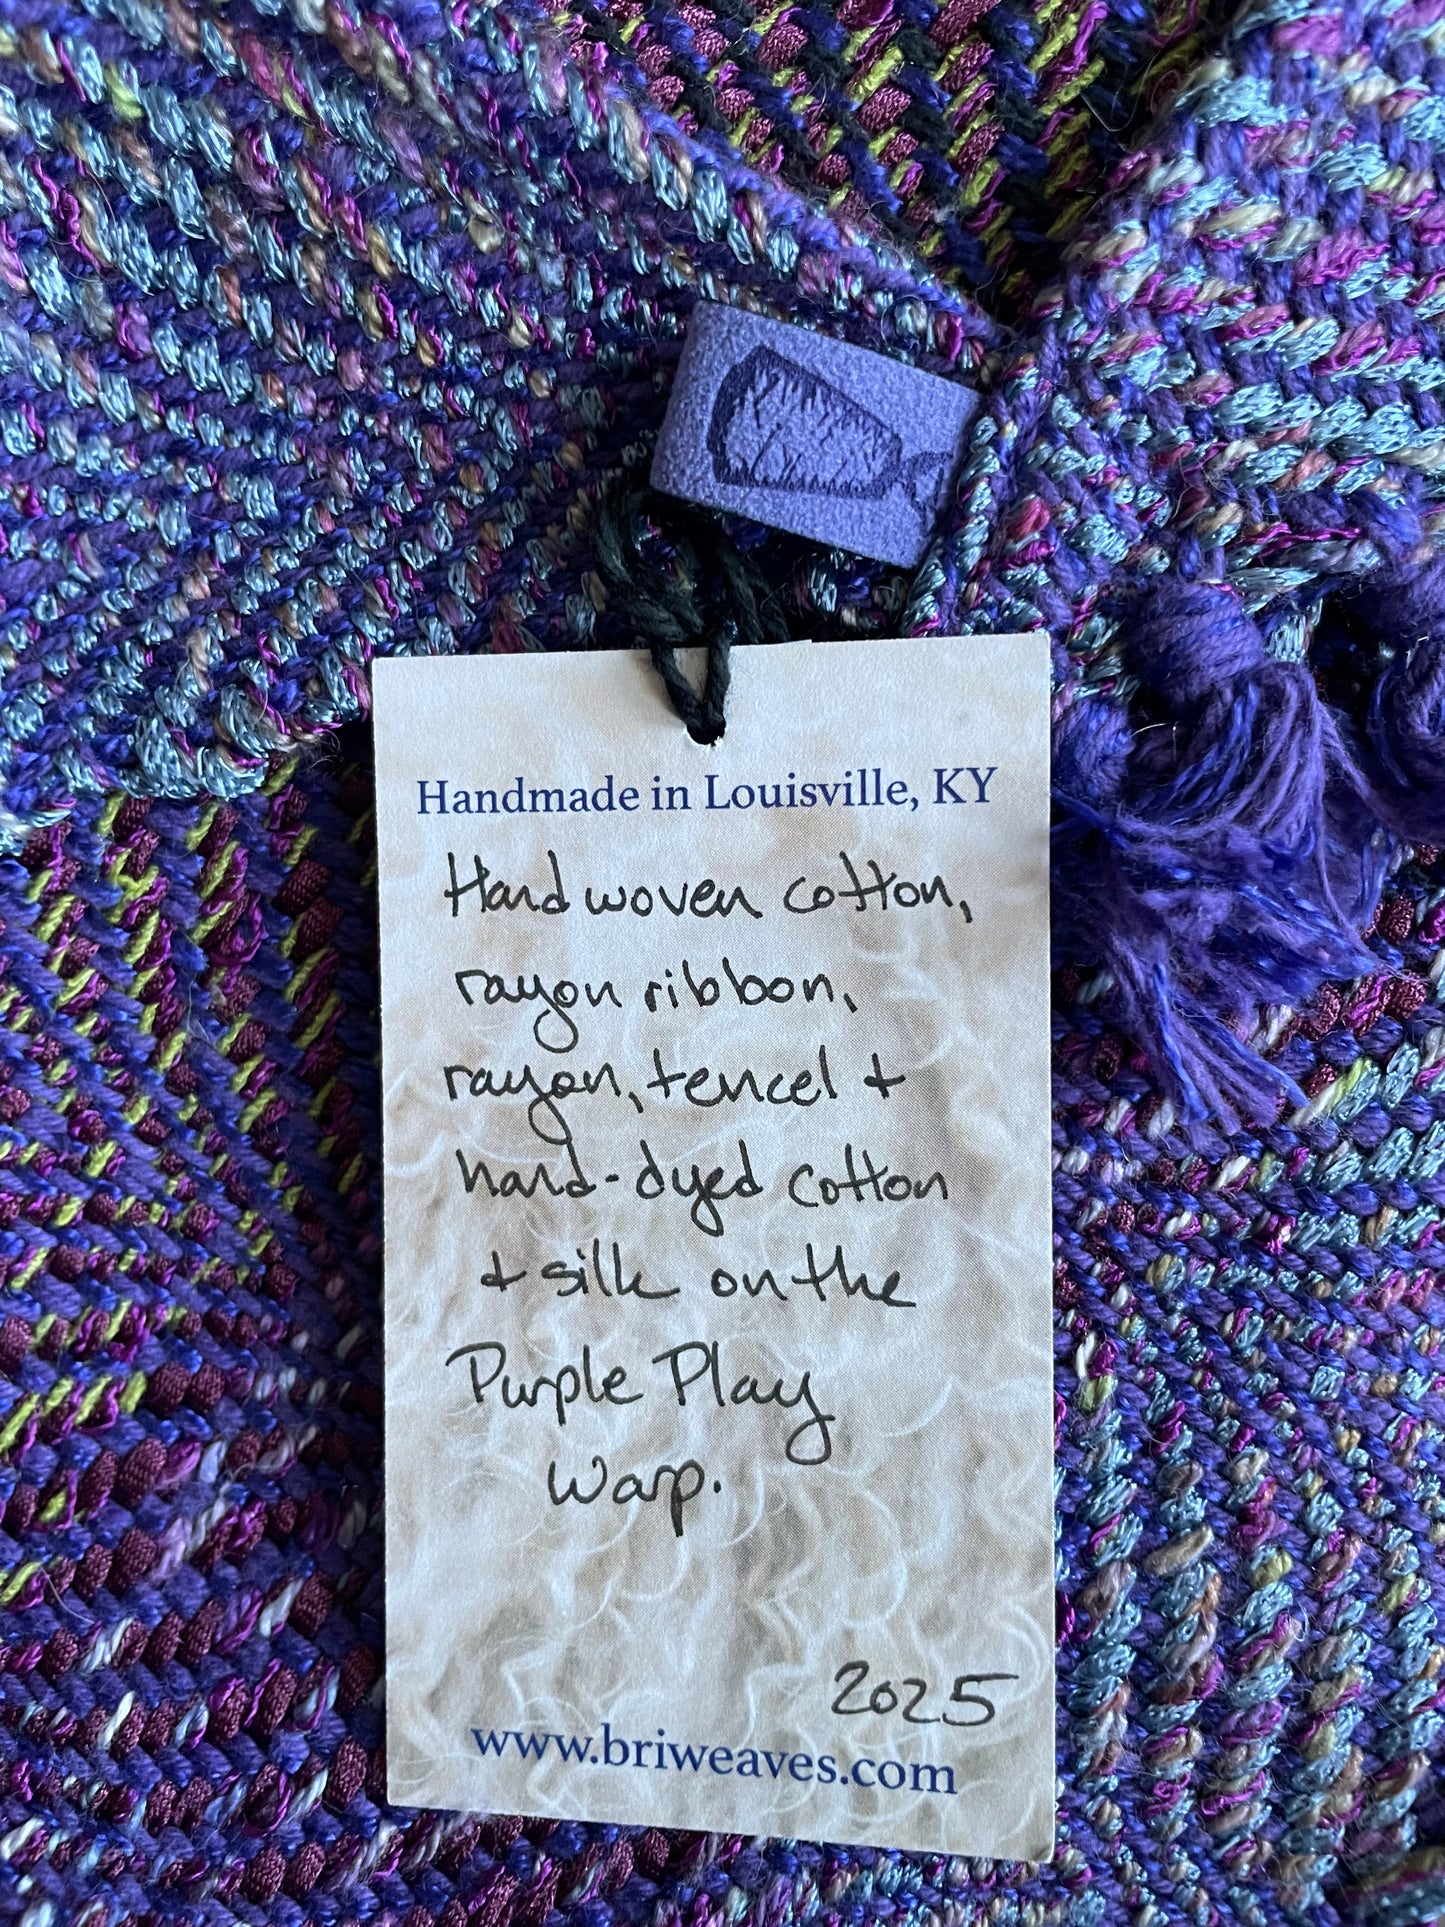 Handmade in Louisville, KY
Handwoven cotton,
rayon ribbon,
rayon, tencel +
hand-dyed cotton
+ silk on the
Purple Play
Warp.
2025
www.briweaves.com